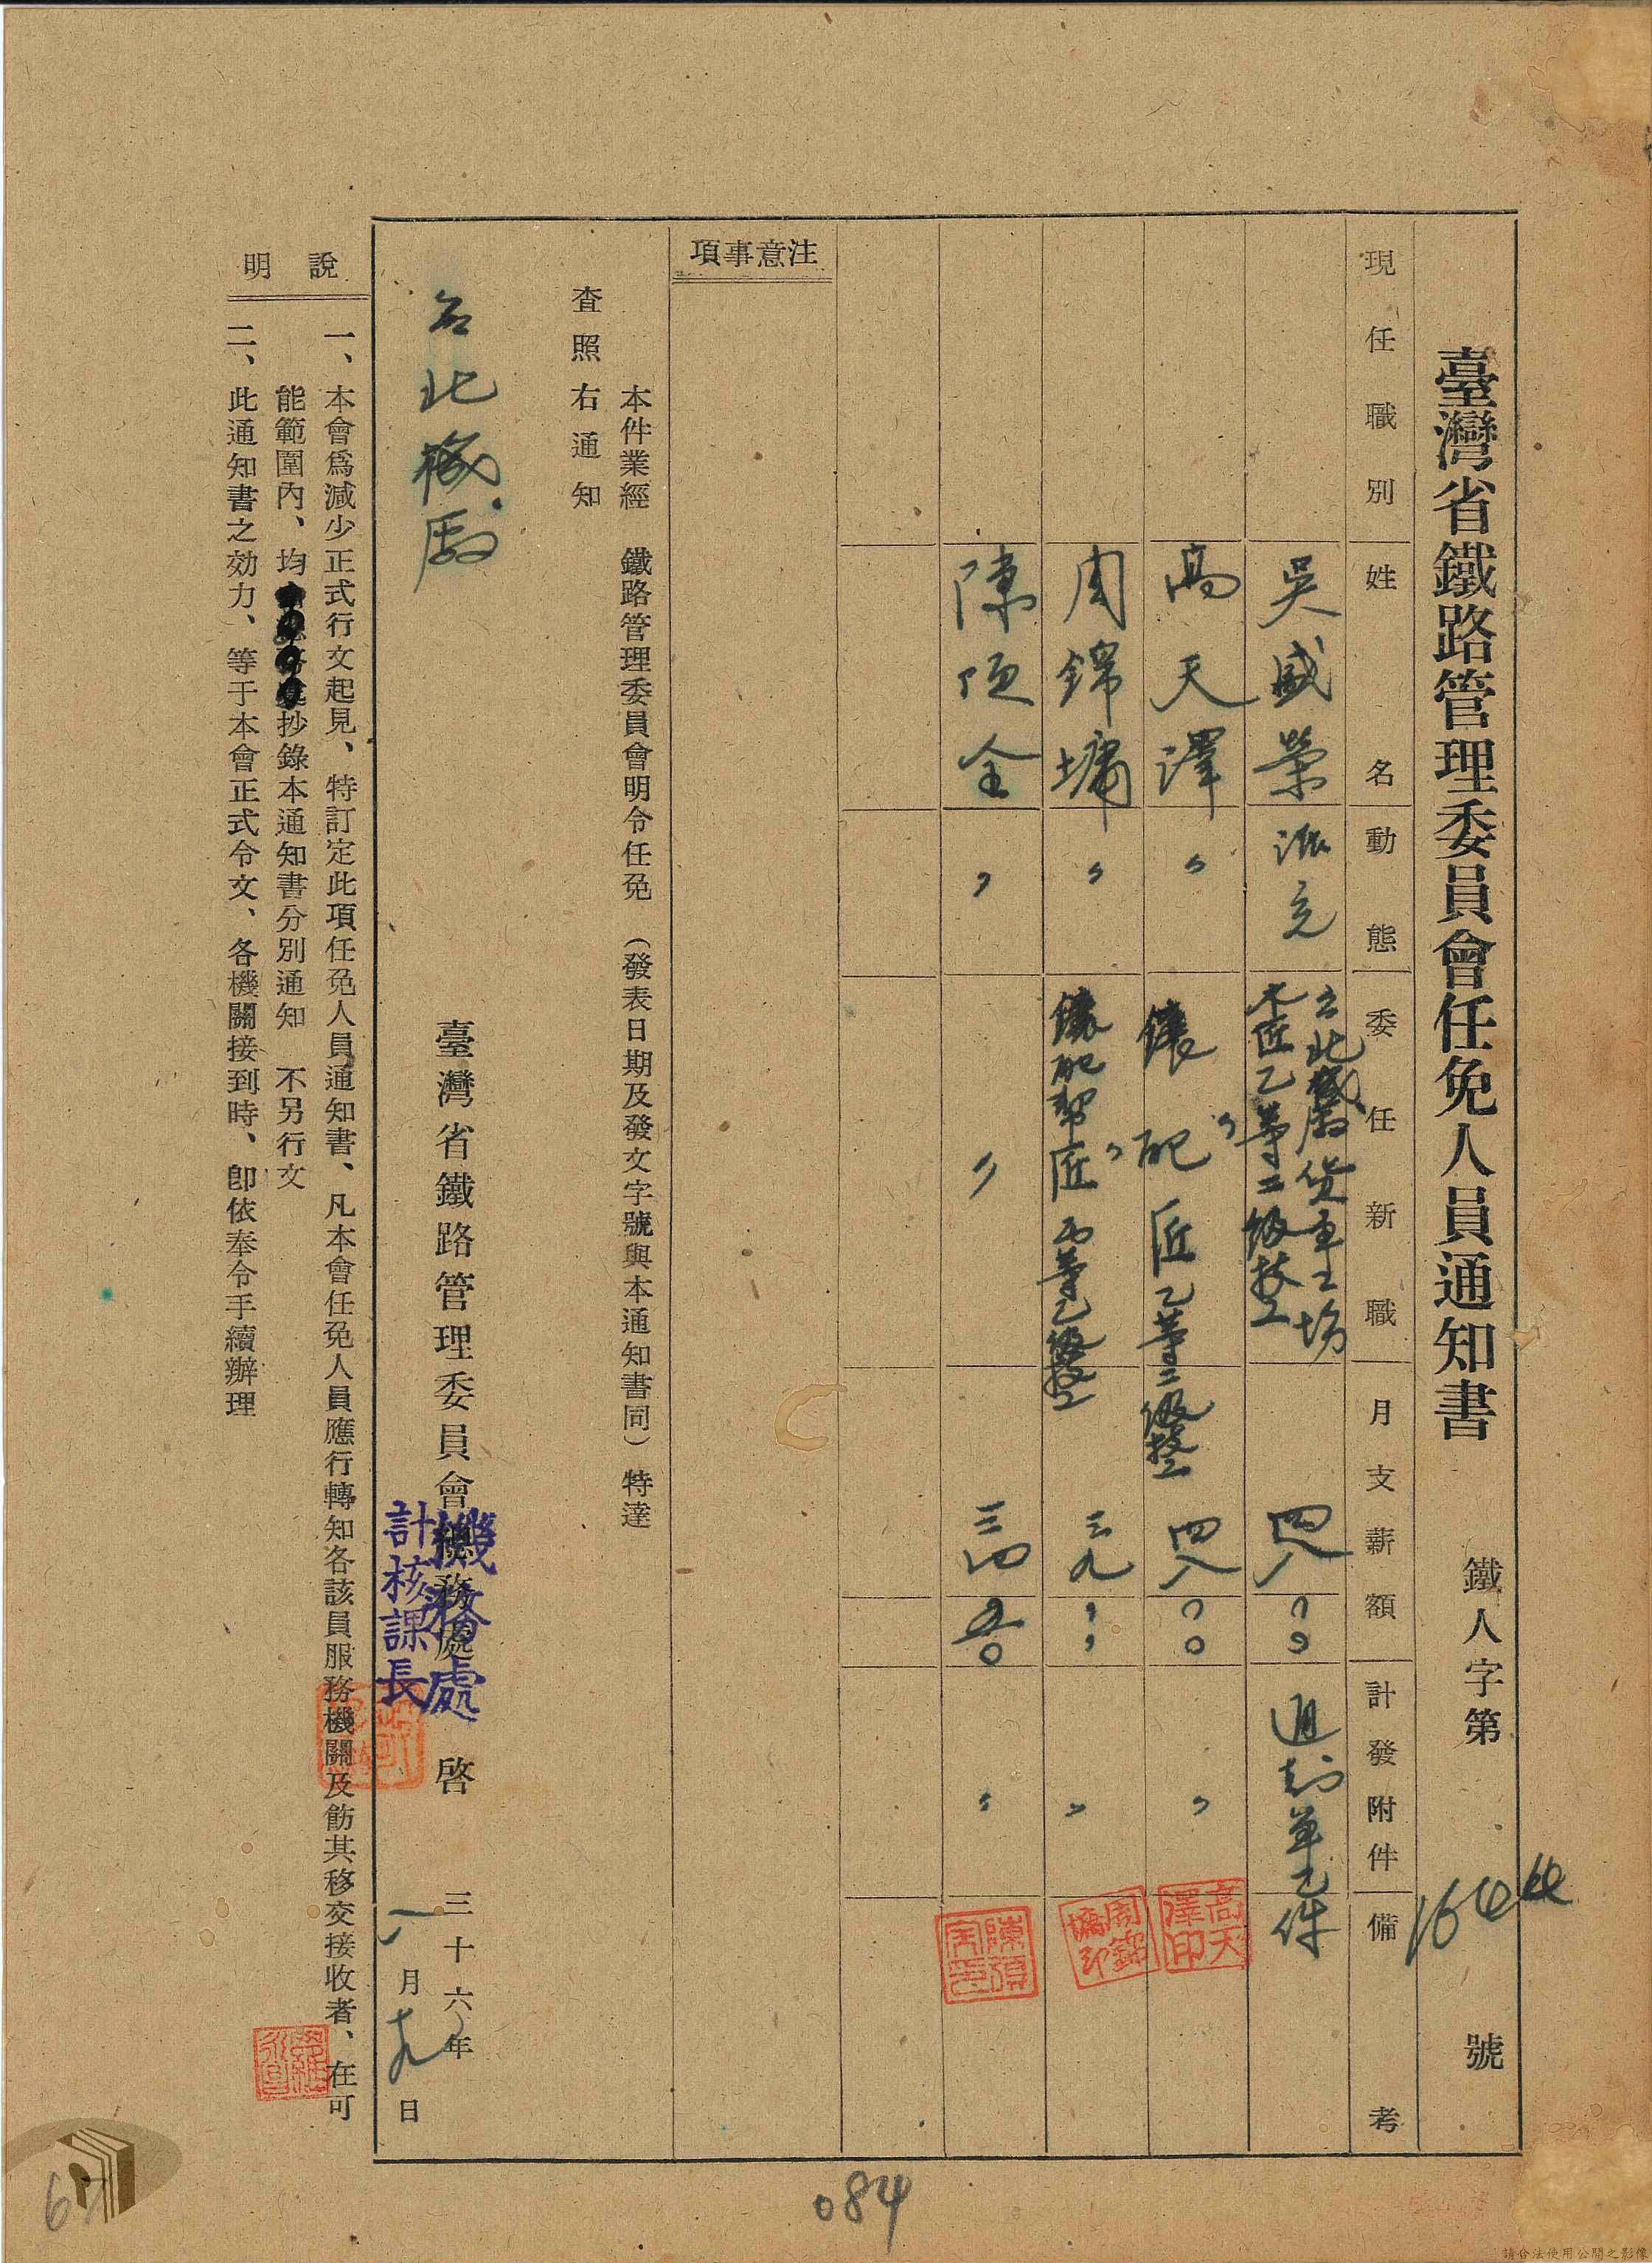 臺灣省鐵路管理委員會任免人員通知書
鐵人字第 164 號
現任職別 姓名 動態 委任新職 月支薪額 計發附件 備考
吳盛榮 派充 台北機廠貨車工場
木匠乙等二級技工 四八〇〇 通知單乙件
高天澤 〃 〃鑲配匠乙等二級技工 四八〇〇 〃
高天澤印
周錦墉 〃 〃鑲配幫匠 三九 〃
周錦墉印
陳項全 〃 〃 三四五〇 〃
注意事項
本件業經 鐵路管理委員會明令任免 (發表日期及發文字號與本通知書同) 特達
查照右通知
台北機廠
臺灣省鐵路管理委員會總務處 啓 三十六年
機務處
計核課長
八月 日
說明
一、本會爲減少正式行文起見、特訂定此項任免人員通知書、凡本會任免人員應行轉知各該員服務機關及飭其移交接收者、在可
能範圍內、均抄錄本通知書分別通知 不另行文
二、此通知書之効力、等于本會正式令文、各機關接到時、卽依奉令手續辦理
084
請合法使用公開之影像